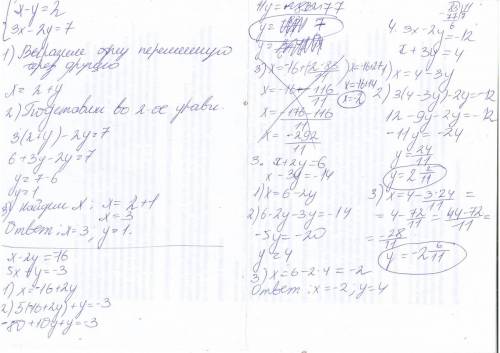 {x-y=2
3x-2y=7
1) Выразим одну переменную
через другую
x=2+y
2) Подставим во 2-ое уравн.
3(2+y)-2y=7
6+3y-2y=7
y=7-6
y=1
3) найдём x: x=2+1
x=3
Ответ: x=3, y=1.
x-2y=-16
5x+y=-3
1) x=-16+2y
2) 5(-16+2y)+y=-3
-80+10y+y=-3
11y=77
y=7
3) x=-16+2·7
x=-16+14
x=-2
x=-16-116
11
x=-176-116
11
x=-292
11
3. x+2y=6
x-3y=-14
1) x=6-2y
2) 6-2y-3y=-14
-5y=-20
y=4
3) x=6-2·4=-2
Ответ: x=-2, y=4
4. 3x-2y=-12
x+3y=4
1) x=4-3y
2) 3(4-3y)-2y=-12
12-9y-2y=-12
-11y=-24
y=24/11
y=2 2/11
3) x=4-3·24/11=
=4-72/11=44-72/11=
=-28/11
y=-2 6/11